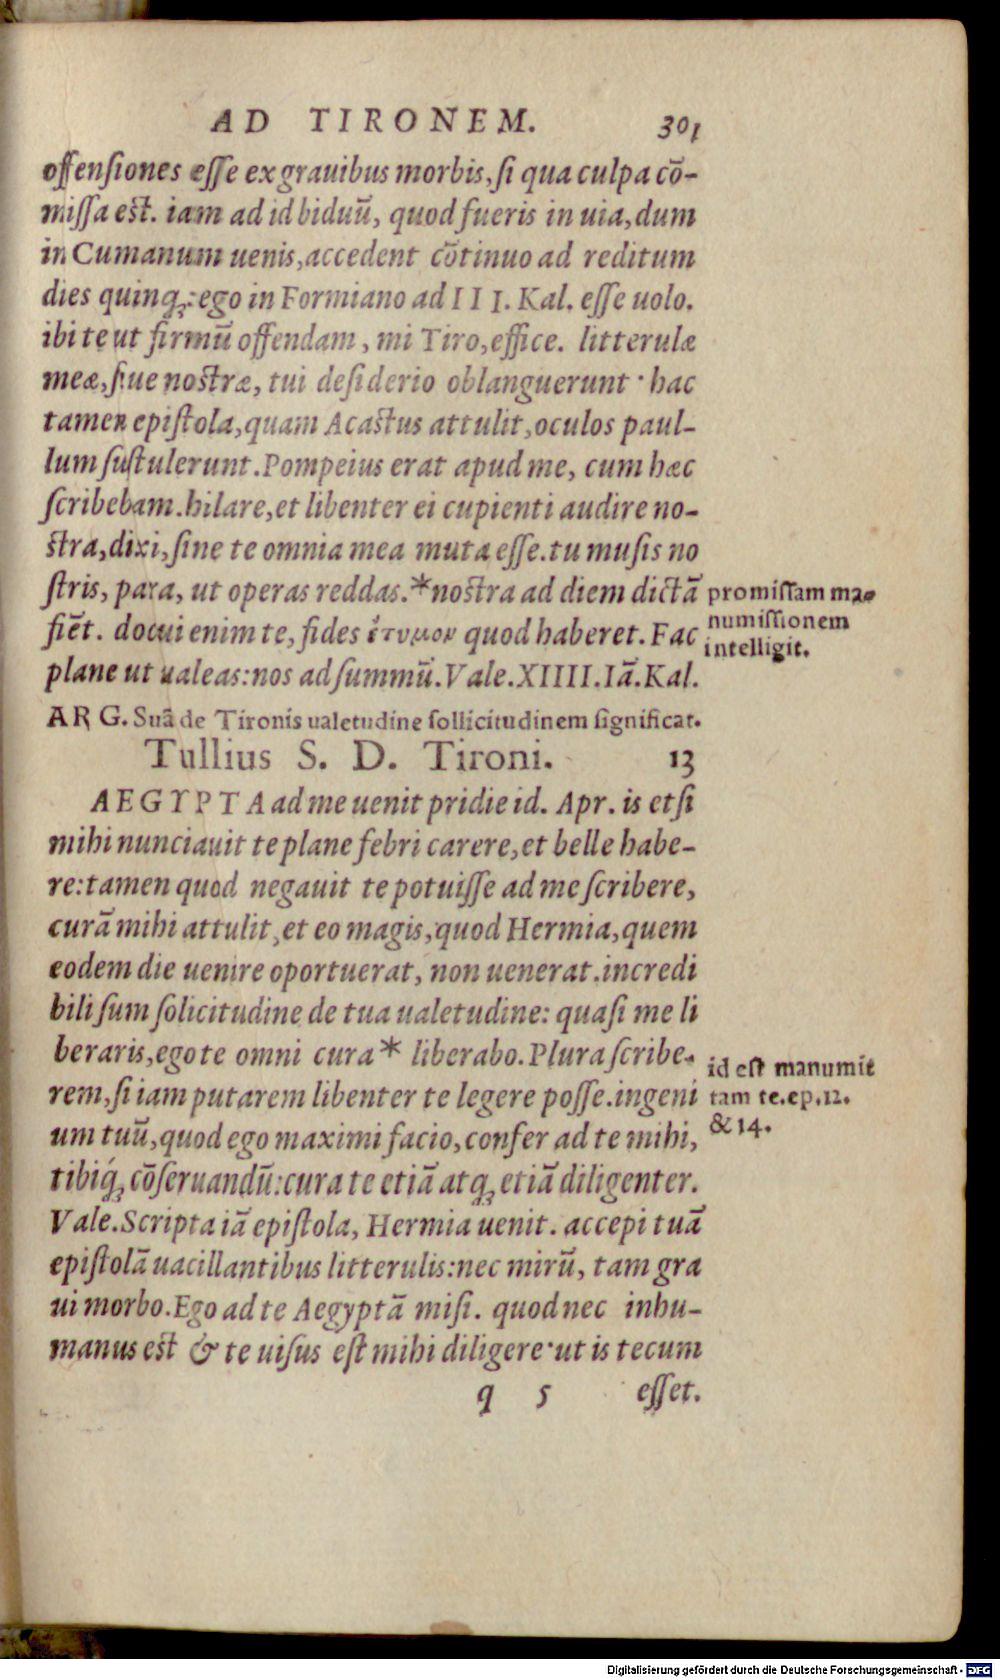 AD TIRONEM. 301
offensiones esse ex grauibus morbis, si qua culpa cō-
missa est. iam ad id biduū, quod fueris in uia, dum
in Cumanum uenis, accedent cōtinuo ad reditum
dies quinq;: ego in Formiano ad III. Kal. esse uolo.
ibi te ut firmū offendam, mi Tiro, effice. litterulæ
meæ, siue nostræ, tui desiderio oblanguerunt· hac
tamen epistola, quam Acastus attulit, oculos paul-
lum sustulerunt. Pompeius erat apud me, cum hæc
scribebam. hilare, et libenter ei cupienti audire no-
stra, dixi, sine te omnia mea muta esse. tu musis no
stris, para, ut operas reddas.*nostra ad diem dictā
promissam ma-
numissionem
intelligit.
fiēt. docui enim te, fides ἔτυμον quod haberet. Fac
plane ut ualeas: nos ad summū. Vale. XIIII. Iā. Kal.
ARG. Suā de Tironis ualetudine sollicitudinem significat.
Tullius S. D. Tironi. 13
AEGYPTA ad me uenit pridie id. Apr. is etsi
mihi nunciauit te plane febri carere, et belle habe-
re: tamen quod negauit te potuisse ad me scribere,
curā mihi attulit, et eo magis, quod Hermia, quem
eodem die uenire oportuerat, non uenerat. incredi
bili sum solicitudine de tua ualetudine: quasi me li
beraris, ego te omni cura* liberabo. Plura scribe-
rem, si iam putarem libenter te legere posse. ingeni
id est manumit
tam te. ep. 12.
& 14.
um tuū, quod ego maximi facio, confer ad te mihi,
tibiq́; cōseruandū: cura te etiā atq; etiā diligenter.
Vale. Scripta iā epistola, Hermia uenit. accepi tuā
epistolā uacillantibus litterulis: nec mirū, tam gra
ui morbo. Ego ad te Aegyptā misi. quod nec inhu-
manus est & te uisus est mihi diligere· ut is tecum
q 5 esset.
Digitalisierung gefördert durch die Deutsche Forschungsgemeinschaft - DFG